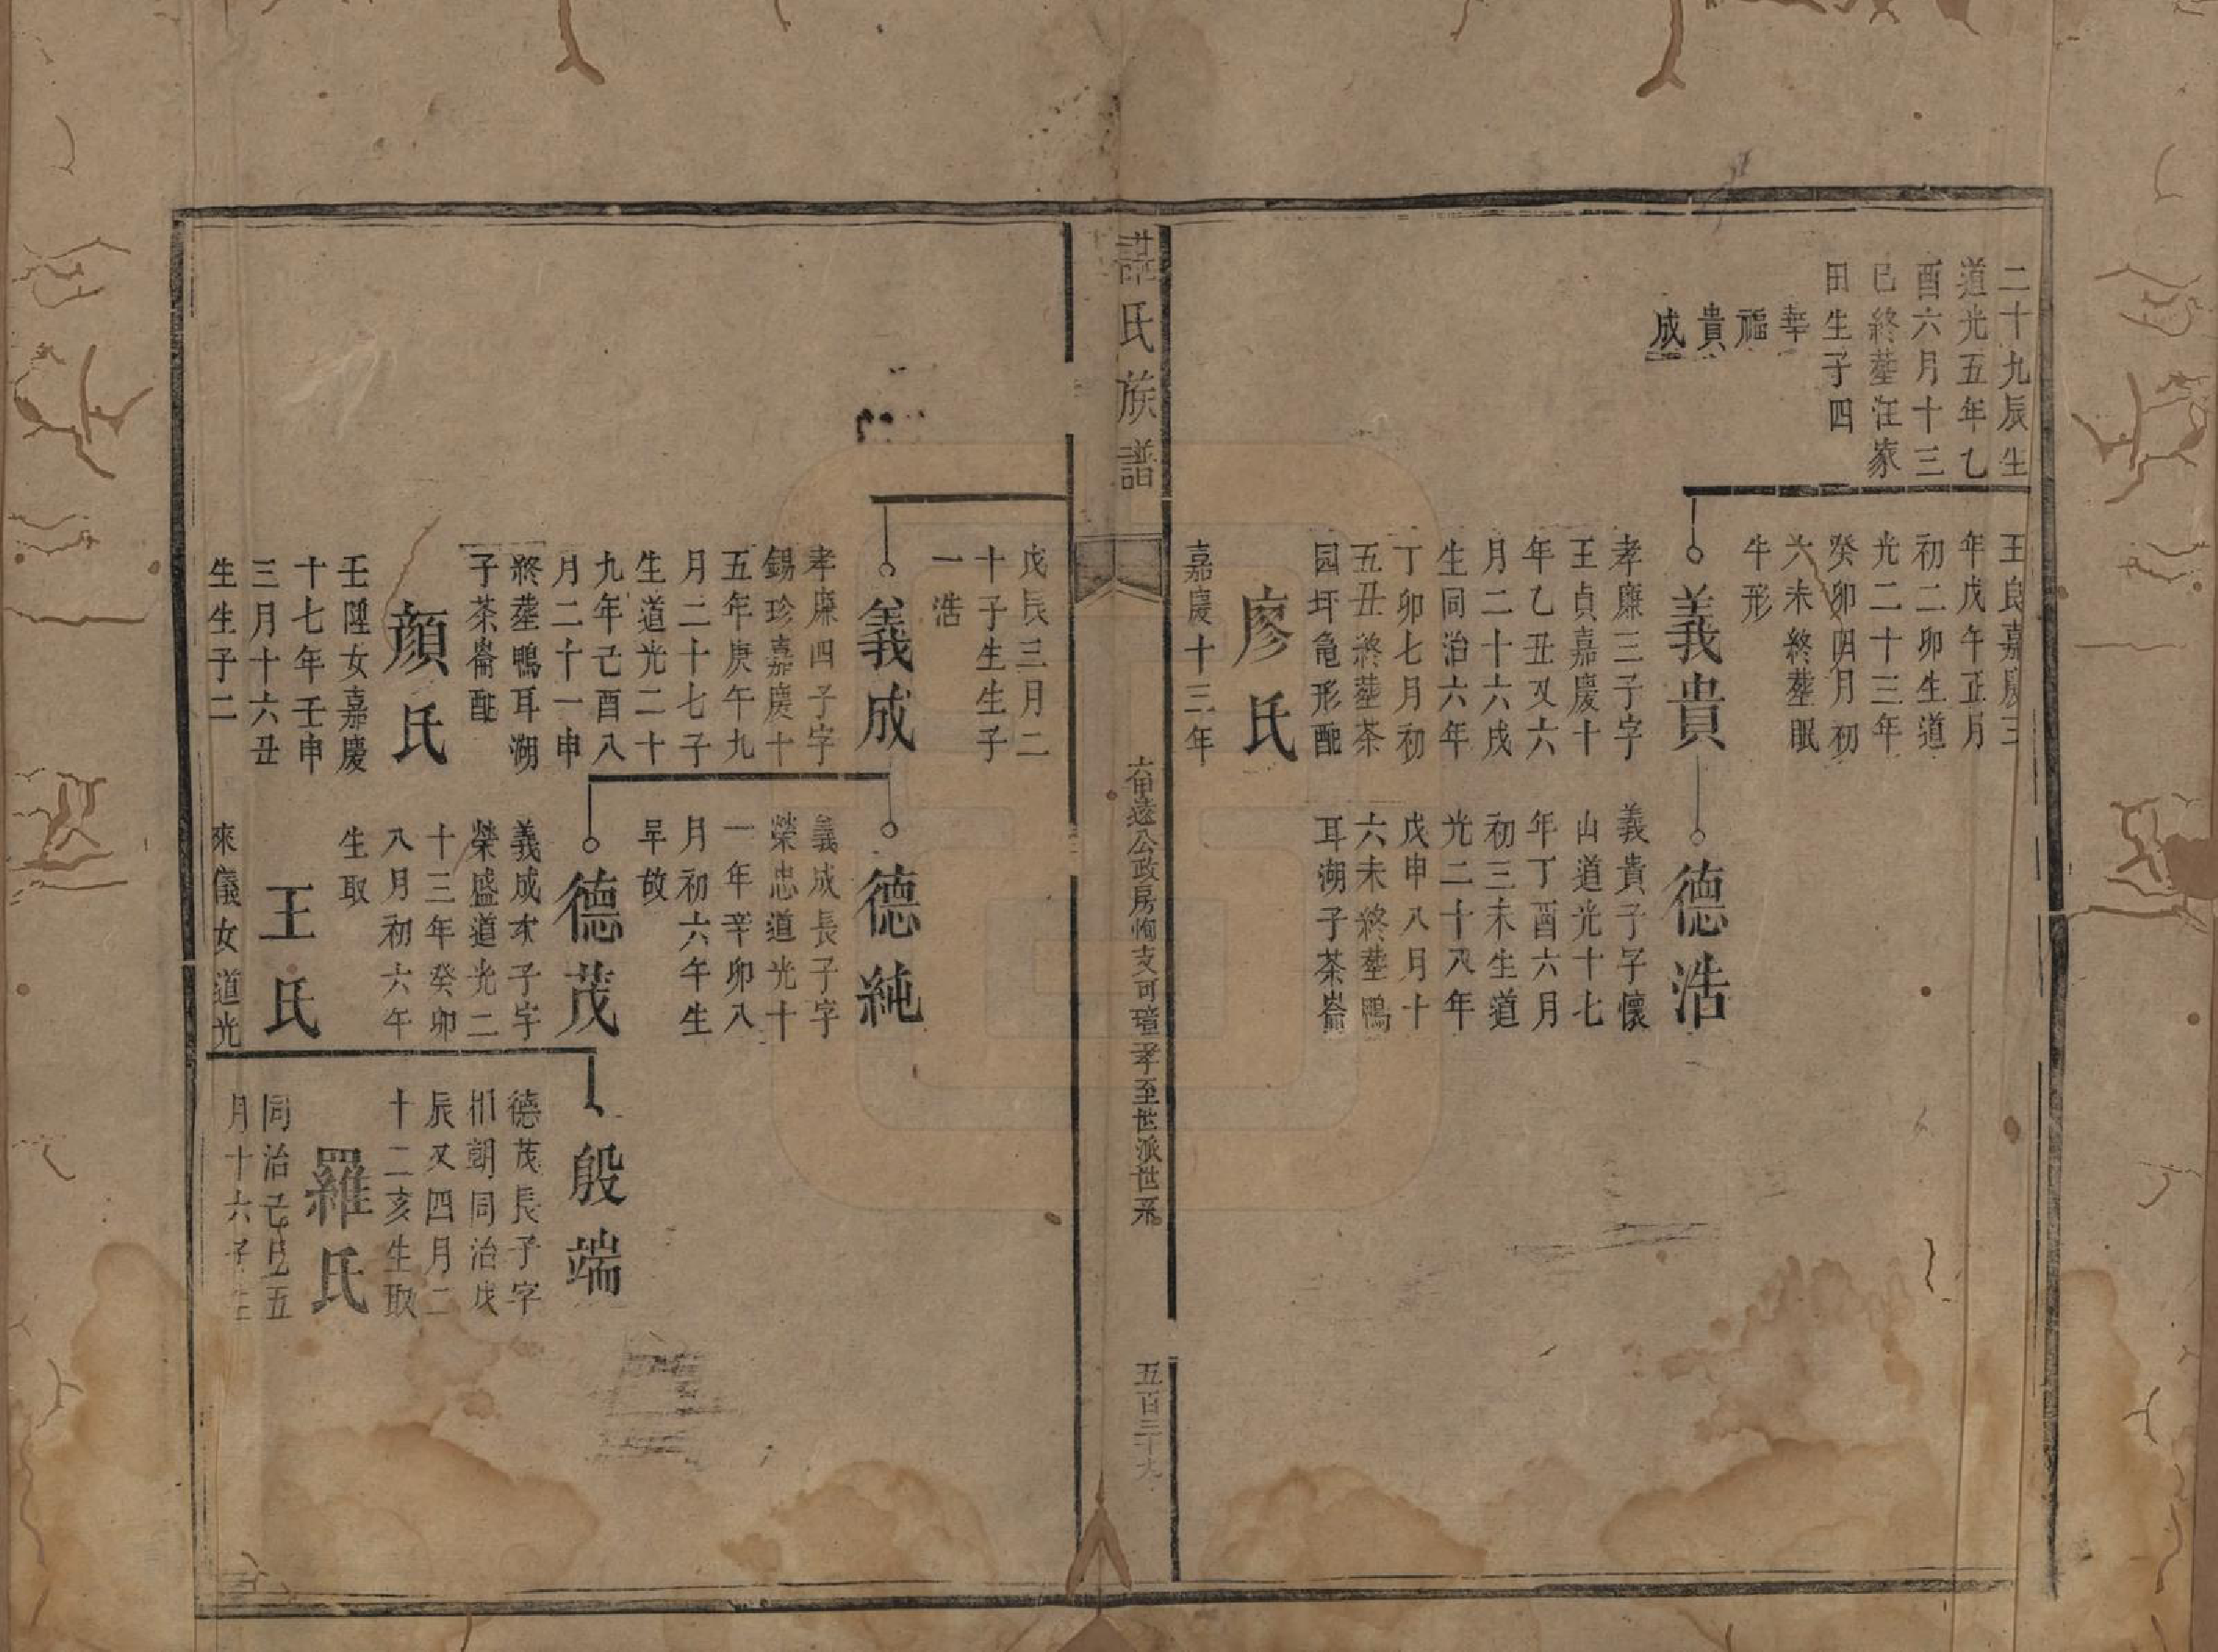 二十九辰生
道光五年乙
酉六月十三
巳終塟汪家
田生子四
華
福
貴
成
王良嘉慶三
年戊午正月
初二卯生道
光二十三年
癸卯閏月初
六未終塟眠
牛形
義貴
孝廉三子字
王貞嘉慶十
年乙丑又六
月二十六戌
生同治六年
丁卯七月初
五丑終塟茶
园坪亀形配
廖氏
嘉慶十三年
德浩
義貴子字懷
山道光十七
年丁酉六月
初三未生道
光二十八年
戊申八月十
六未終塟鴨
耳湖子茶崙
譚氏族譜
公政房恂支可瑄孝至世派世系
五百三十九
戊辰三月二
十子生生子
一浩
義成
孝廉四子字
錫珍嘉慶十
五年庚午九
月二十七子
生道光二十
九年己酉八
月二十一申
終塟鴨耳湖
子茶崙配
顏氏
壬陞女嘉慶
十七年壬申
三月十六丑
生生子二
德純
義成長子字
榮忠道光十
一年辛卯八
月初六午生
早故
德茂
義成次子字
榮盛道光二
十三年癸卯
八月初六午
生取
王氏
來儀女道光
殷端
德茂長子字
相朝同治戊
辰又四月二
十二亥生取
羅氏
同治己巳五
月十六子生